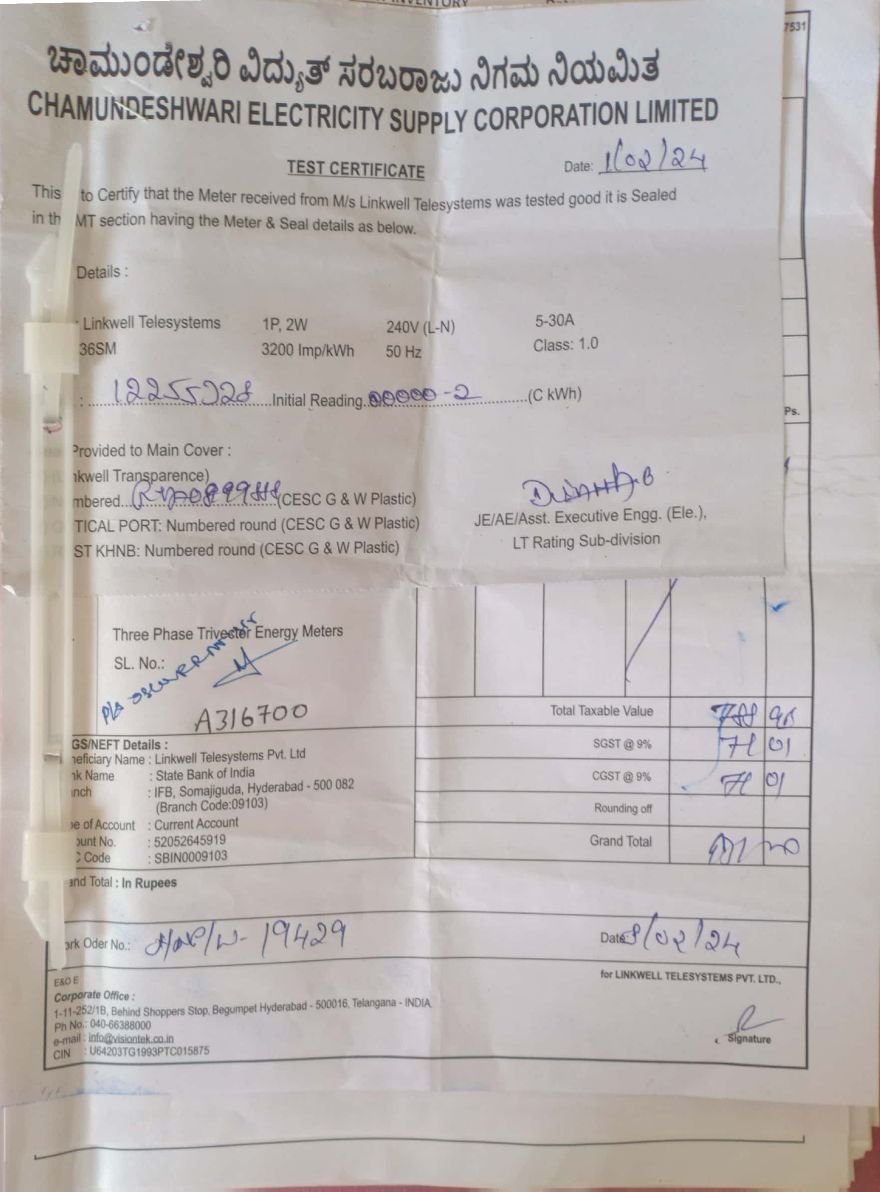 INVENTORY
7531
ಚಾಮುಂಡೇಶ್ವರಿ ವಿದ್ಯುತ್ ಸರಬರಾಜು ನಿಗಮ ನಿಯಮಿತ
CHAMUNDESHWARI ELECTRICITY SUPPLY CORPORATION LIMITED
TEST CERTIFICATE Date: 1/02/24
This to Certify that the Meter received from M/s Linkwell Telesystems was tested good it is Sealed
in th MT section having the Meter & Seal details as below.
Details :
Linkwell Telesystems 1P, 2W 240V (L-N) 5-30A
36SM 3200 Imp/kWh 50 Hz Class: 1.0
: Initial Reading 00000-2 (C kWh)
Ps.
Provided to Main Cover :
nkwell Transparence)
mbered (CESC G & W Plastic)
TICAL PORT: Numbered round (CESC G & W Plastic)
ST KHNB: Numbered round (CESC G & W Plastic)
JE/AE/Asst. Executive Engg. (Ele.),
LT Rating Sub-division
Three Phase Trivector Energy Meters
SL. No.:
A316700
Total Taxable Value
SGST @ 9% 71 01
CGST @ 9% 71 01
Rounding off
Grand Total
GS/NEFT Details :
neficiary Name : Linkwell Telesystems Pvt. Ltd
nk Name : State Bank of India
nch : IFB, Somajiguda, Hyderabad - 500 082
(Branch Code:09103)
e of Account : Current Account
ount No. : 52052645919
C Code : SBIN0009103
and Total : In Rupees
ork Oder No.: 19429 Date 8/02/24
for LINKWELL TELESYSTEMS PVT. LTD.,
E&O E
Corporate Office :
1-11-252/1B, Behind Shoppers Stop, Begumpet Hyderabad - 500016, Telangana - INDIA
Ph No.: 040-66388000
e-mail : info@visiontek.co.in
CIN : U64203TG1993PTC015875
Signature